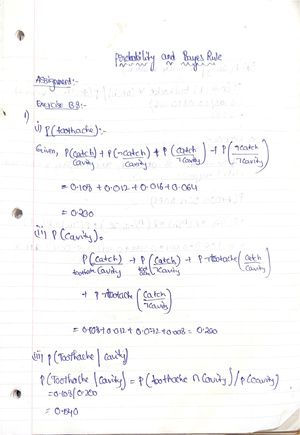 Probability and Bayes Rule
Assignment:-
Exercise 13.8:-
1)
(i) P(toothache):-
Given, P(catch/cavity) + P(¬catch/cavity) + P(catch/¬cavity) + P(¬catch/¬cavity)
= 0.108 + 0.012 + 0.016 + 0.064
= 0.200
(ii) P(cavity) =
P(catch/cavity) + P(catch/¬cavity) + P¬toothache(catch/cavity)
+ P¬toothache(catch/¬cavity)
= 0.108 + 0.012 + 0.072 + 0.008 = 0.200
(iii) P(Toothache | cavity)
P(Toothache | cavity) = P(toothache ∩ cavity) / P(cavity)
= 0.108/0.200
= 0.540